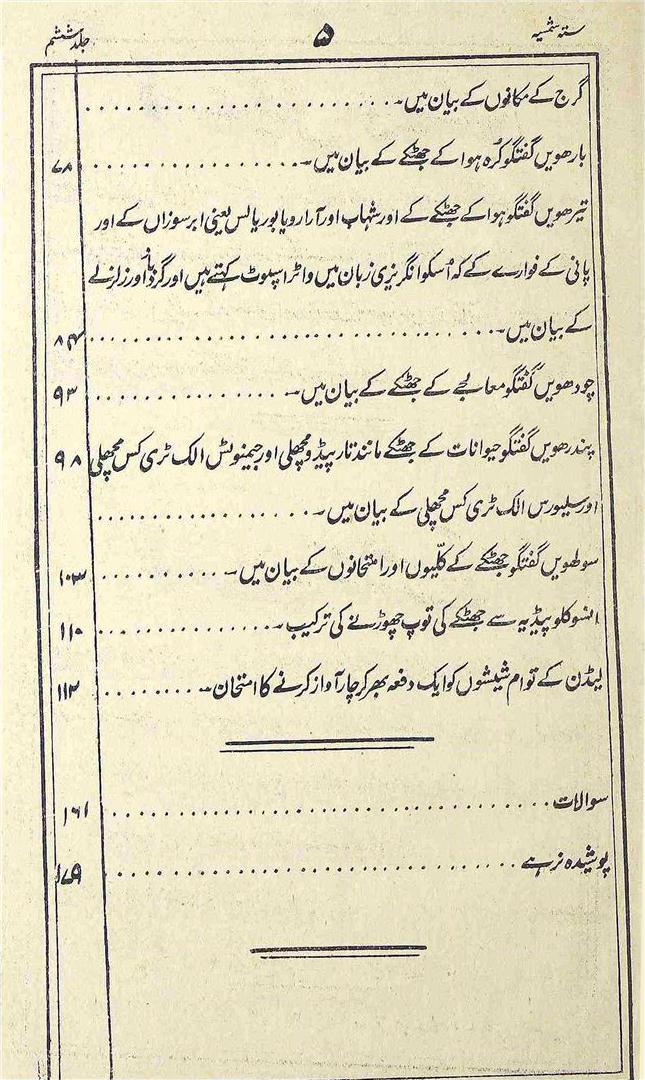 ستہ شمسیہ ۵ جلد ششم
گرج کے مکانوں کے بیان میں۔
بارھویں گفتگو کرۂ ہوا کے جھٹکے کے بیان میں۔ ۷۸
تیرھویں گفتگو ہوا کے جھٹکے کے اور شہاب اور آرارویا بوریالس یعنی ابر سوزاں کے اور
پانی کے فوارے کے کہ اُسکو انگریزی زبان میں واٹر اسپوٹ کہتے ہیں اور گردباد اور زلزلے
کے بیان میں۔ ۸۴
چودھویں گفتگو معالجے کے جھٹکے کے بیان میں۔ ۹۳
پندرھویں گفتگو حیوانات کے جھٹکے مانند تارپیڈو مچھلی اور جیمنوٹس الک ٹری کس مچھلی ۹۸
اور سلیورس الک ٹری کس مچھلی کے بیان میں۔
سولھویں گفتگو جھٹکے کے کلّیوں اور امتحانوں کے بیان میں۔ ۱۰۳
انسوکلوپیڈیہ سے جھٹکے کی توپ چھوڑنے کی ترکیب۔ ۱۱۰
لیڈن کے توام شیشوں کو ایک دفعہ بھر کر چار آواز کرنے کا امتحان۔ ۱۱۲
سوالات ۱۶۱
پوشیدہ نرہے ۱۷۹